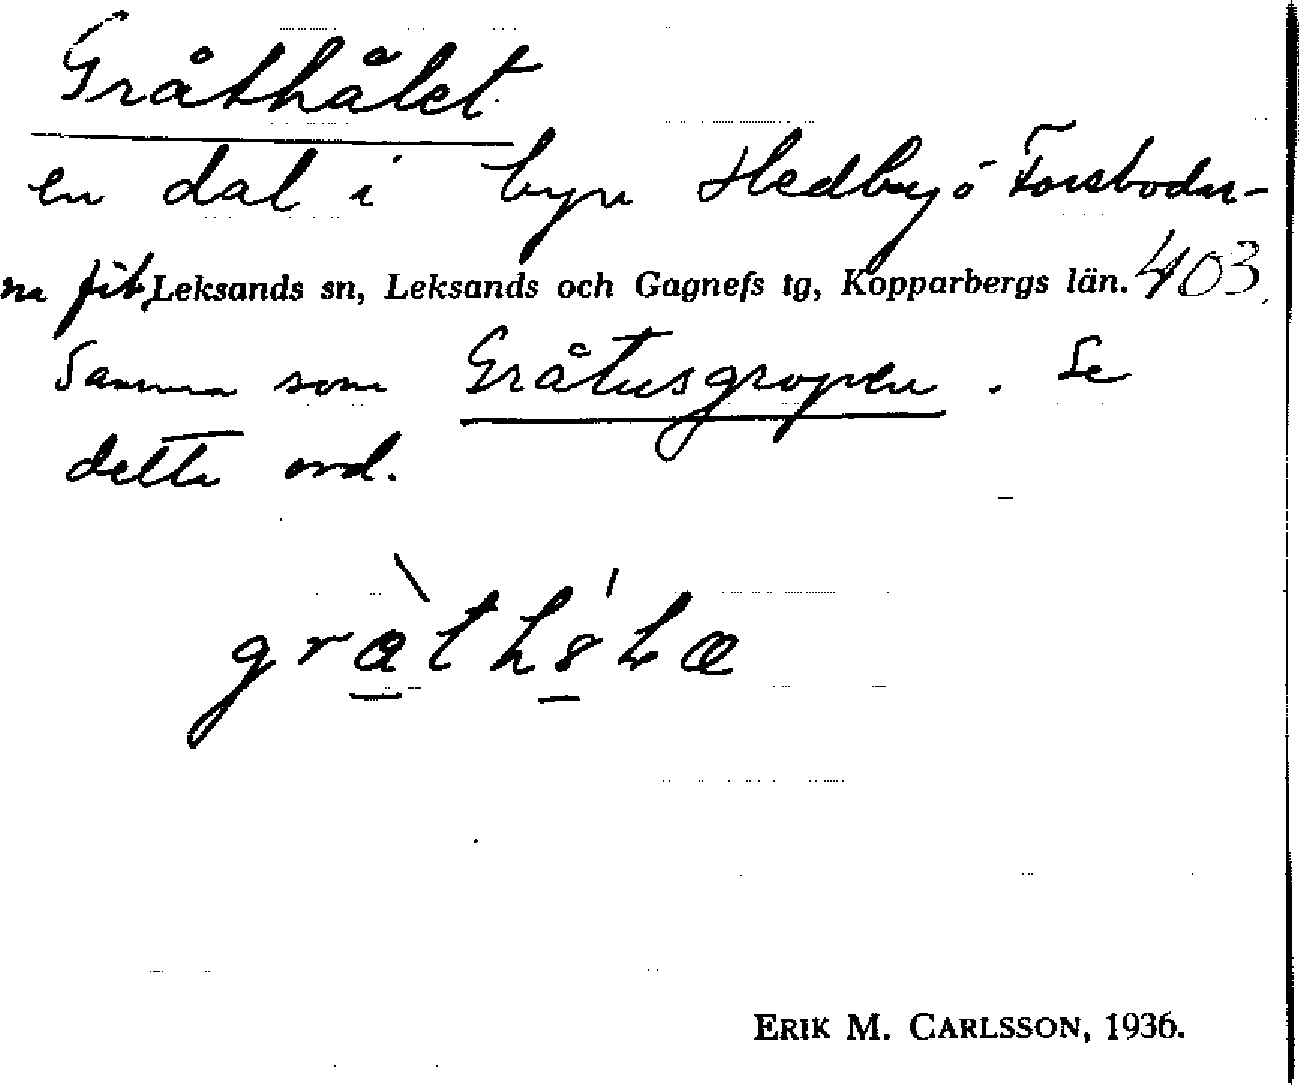 Gråthålet
en dal i byn Hedby ö Forsbodar-
na fäb, Leksands sn, Leksands och Gagnefs tg, Kopparbergs län. 403
Samma som Gråtusgropen. Se
detta ord.
ERIK M. CARLSSON, 1936.